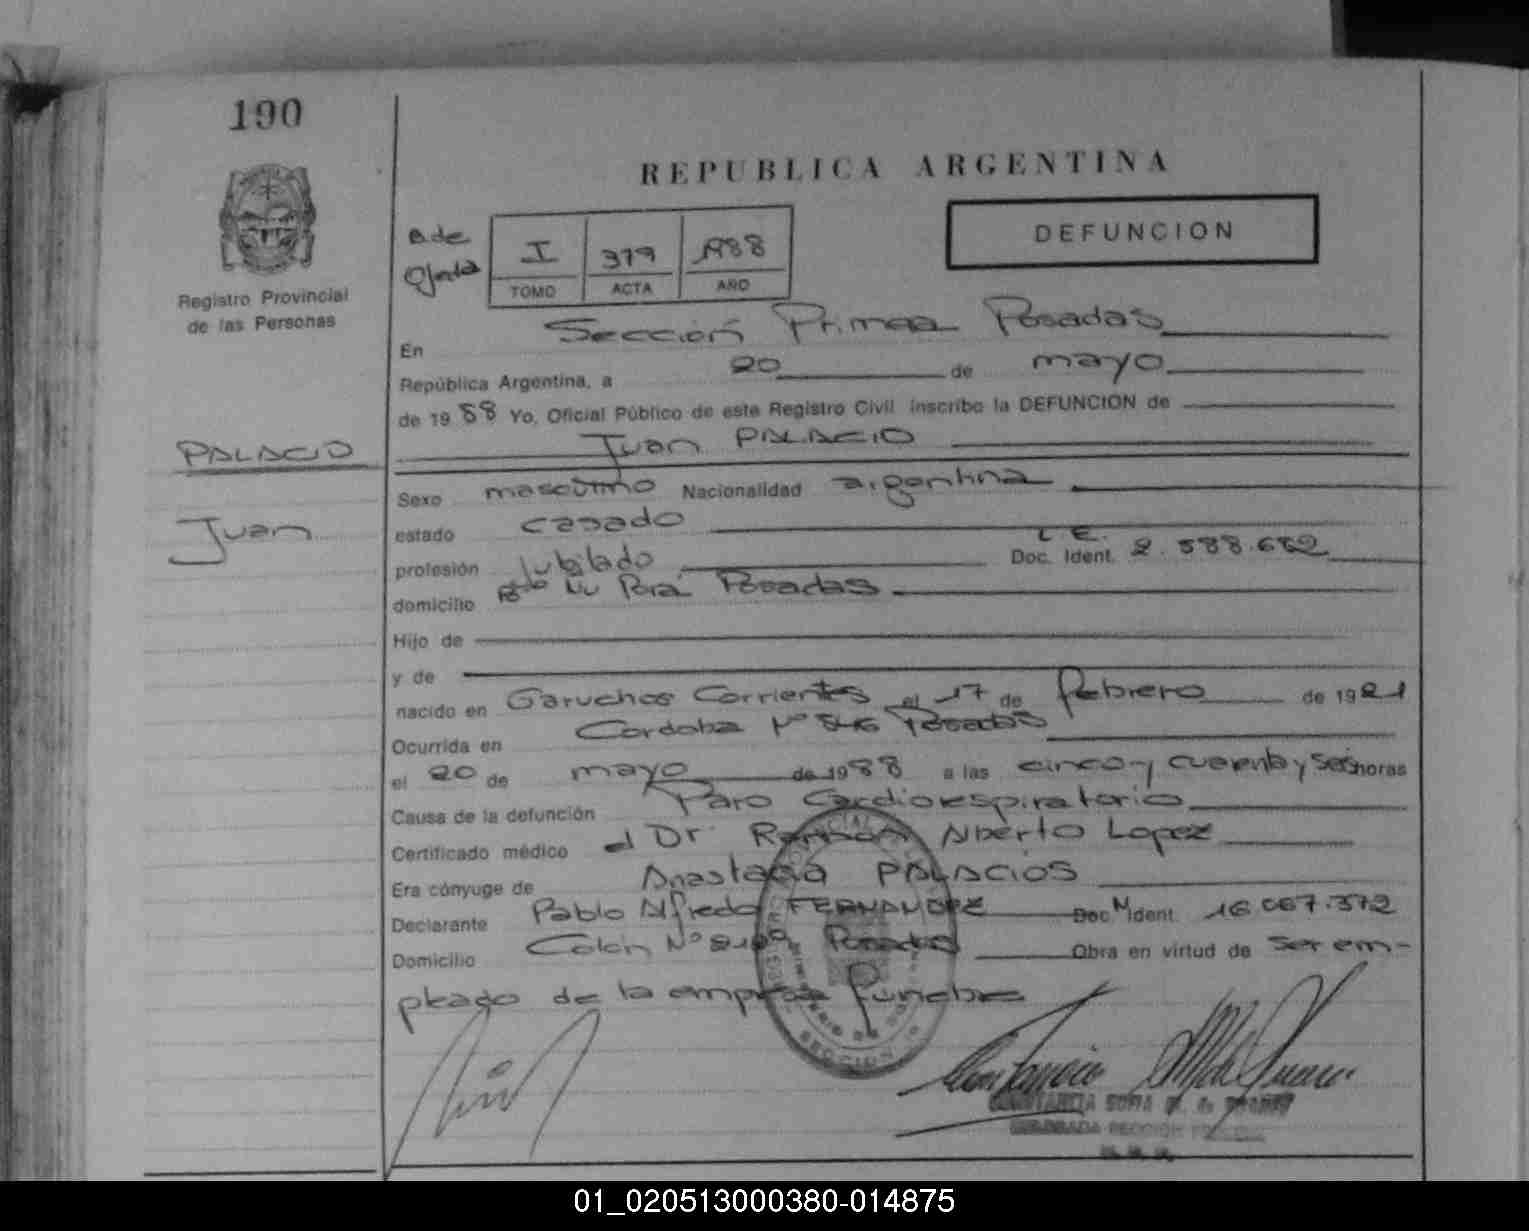 190
REPUBLICA ARGENTINA
Registro Provincial
de las Personas
I 379 1988
TOMO ACTA AÑO
DEFUNCION
En Sección Primera Posadas
República Argentina, a 20 de mayo
de 1988 Yo, Oficial Público de este Registro Civil inscribo la DEFUNCION de
Juan PALACIO
PALACIO
Juan
Sexo masculino Nacionalidad argentina
estado casado
profesión Jubilado Doc. Ident. L.E. 2.588.682
domicilio Ñu Porá Posadas
Hijo de
y de
nacido en Garuchos Corrientes el 17 de febrero de 1921
Ocurrida en Cordoba Nº 546 Posadas
el 20 de mayo de 1988 a las cinco y cuarenta y seis horas
Causa de la defunción Paro Cardiorespiratorio
Certificado médico el Dr. Ramón Alberto Lopez
Era cónyuge de Anastacia PALACIOS
Declarante Pablo Alfredo FERNANDEZ Doc. M Ident. 16.067.372
Domicilio Colón Nº Posadas Obra en virtud de ser em-
pleado de la empresa funebre
01_020513000380-014875